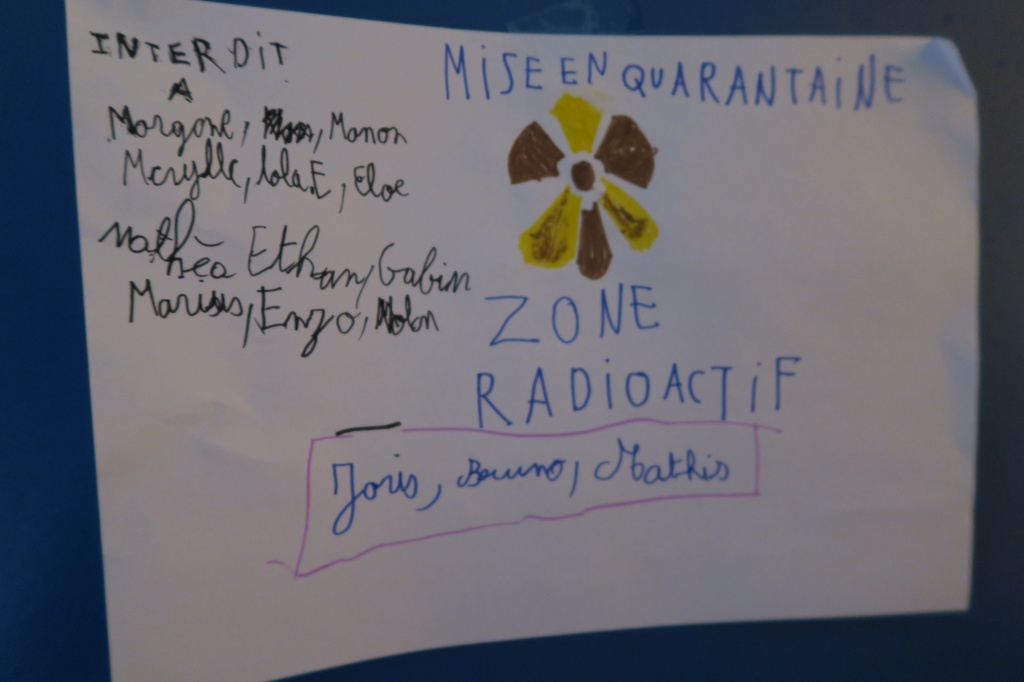 INTERDIT
A
Morgane, Manon
Merylle, lola.E, Eloe
Mathéo Ethan, Gabin
Marius, Enzo,
MiSE EN QUARANTAiNE
ZONE
RADiOACTiF
Joris, Bruno, Mathis